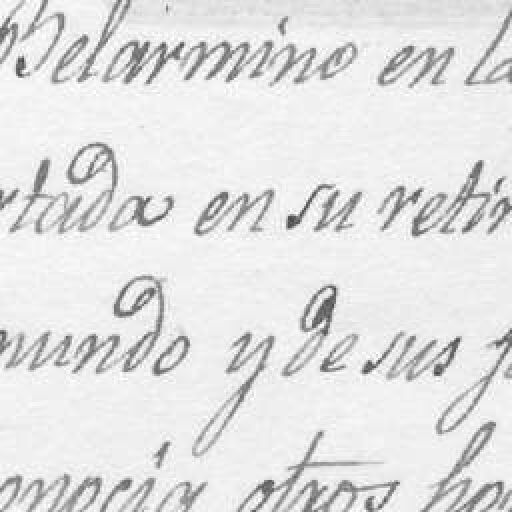 Belarmino en la
rtada en su retir
mundo y de sus
onocia otros ho